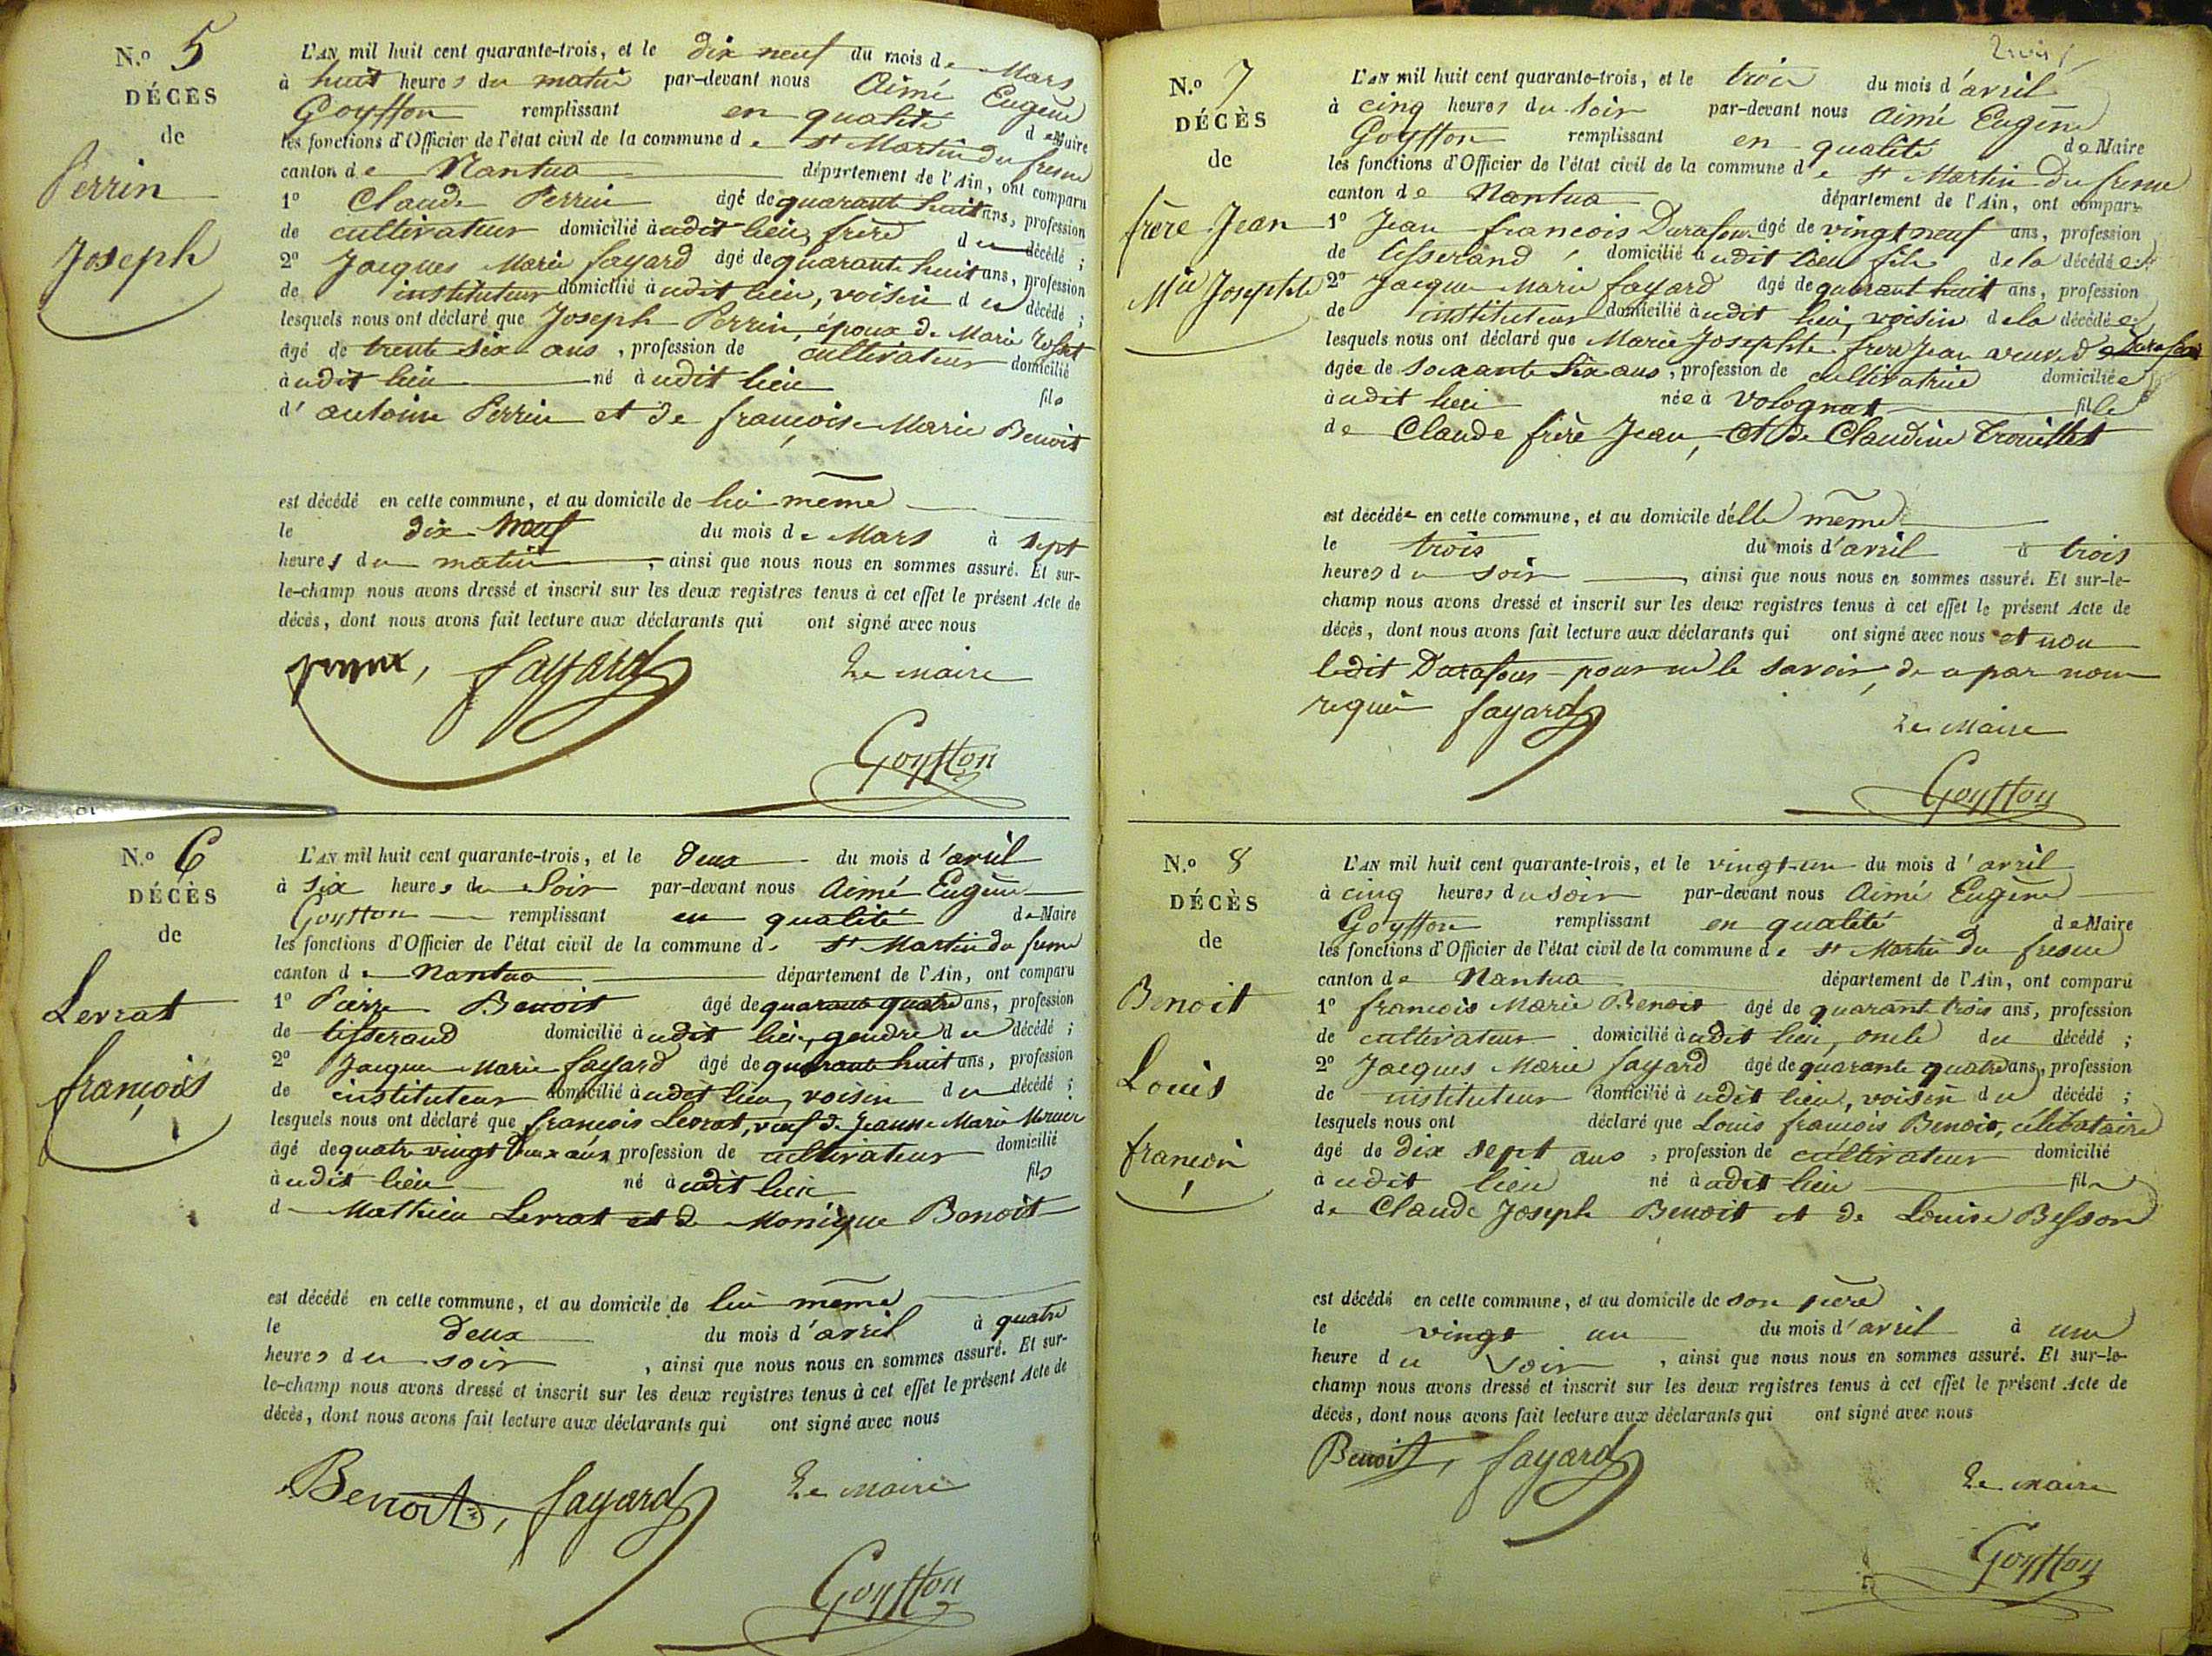 N.º 5
DÉCÈS
de
Perrin
Joseph
L'AN mil huit cent quarante-trois, et le dix neuf du mois de Mars
à huit heures du matin par-devant nous Aimé Eugène
Goyffon remplissant en qualité de Maire
les fonctions d'Officier de l'état civil de la commune de St Martin du fresne
canton de Nantua département de l'Ain, ont comparu
1º Claude Perrin âgé de quarant huit ans, profession
de cultivateur domicilié audit lieu, frère du décédé ;
2º Jacques Marie fayard âgé de quarante huit ans, profession
de instituteur domicilié audit lieu, voisin du décédé ;
lesquels nous ont déclaré que Joseph Perrin, époux de Marie
âgé de trente six ans , profession de cultivateur domicilié
audit lieu né audit lieu fils
d' antoine Perrin et de françoise Marie Benoit
est décédé en cette commune, et au domicile de lui même
le dix neuf du mois de Mars à sept
heures du matin , ainsi que nous nous en sommes assuré. Et sur-
le-champ nous avons dressé et inscrit sur les deux registres tenus à cet effet le présent Acte de
décès, dont nous avons fait lecture aux déclarants qui ont signé avec nous
fayard Le maire
Goyffon
N.º 6
DÉCÈS
de
Levrat
françois
L'AN mil huit cent quarante-trois, et le deux du mois d'avril
à six heures du Soir par-devant nous Aimé Eugène
Goyffon remplissant en qualité de Maire
les fonctions d'Officier de l'état civil de la commune de St Martin du fresne
canton de Nantua département de l'Ain, ont comparu
1º Pierre Benoit âgé de quarante quatre ans, profession
de tisserand domicilié audit lieu, gendre du décédé ;
2º Jacque Marie fayard âgé de quarante huit ans, profession
de instituteur domicilié audit lieu, voisin du décédé ;
lesquels nous ont déclaré que françois Levrat, veuf de Jeanne Marie Mercier
âgé de quatre vingt deux ans profession de cultivateur domicilié
audit lieu né audit lieu fils
de Mathieu Levrat et de Monique Benoit
est décédé en cette commune, et au domicile de lui même
le deux du mois d'avril à quatre
heures du soir , ainsi que nous nous en sommes assuré. Et sur-
le-champ nous avons dressé et inscrit sur les deux registres tenus à cet effet le présent Acte de
décès, dont nous avons fait lecture aux déclarants qui ont signé avec nous
Benoit, fayard Le maire
Goyffon
N.º 7
DÉCÈS
de
frère Jean
Mie Josephte
L'AN mil huit cent quarante-trois, et le trois du mois d'avril
à cinq heures du soir par-devant nous Aimé Eugène
Goyffon remplissant en qualité de Maire
les fonctions d'Officier de l'état civil de la commune de St Martin du fresne
canton de Nantua département de l'Ain, ont comparu
1º Jean francois Durafour âgé de vingt neuf ans, profession
de tisserand domicilié audit lieu fils de la décédée ;
2º Jacque Marie fayard âgé de quarant huit ans, profession
de instituteur domicilié audit lieu, voisin de la décédée ;
lesquels nous ont déclaré que Marie Josephte frère Jean veuve de Durafour
âgée de soixante six ans , profession de cultivatrice domiciliée
audit lieu née à Volognat fille
de Claude frère Jean, et de Claudine Trouillet
est décédée en cette commune, et au domicile d'elle même
le trois du mois d'avril à trois
heures du soir , ainsi que nous nous en sommes assuré. Et sur-le-
champ nous avons dressé et inscrit sur les deux registres tenus à cet effet le présent Acte de
décès, dont nous avons fait lecture aux déclarants qui ont signé avec nous et non
ledit Durafour pour ne le savoir, de a par nous
requis fayard Le Maire
Goyffon
N.º 8
DÉCÈS
de
Benoit
Louis
francois
L'AN mil huit cent quarante-trois, et le vingt-un du mois d'avril
à cinq heures du soir par-devant nous Aimé Eugène
Goyffon remplissant en qualité de Maire
les fonctions d'Officier de l'état civil de la commune de St Martin du fresne
canton de Nantua département de l'Ain, ont comparu
1º francois Marie Benoit âgé de quarant trois ans, profession
de cultivateur domicilié audit lieu, oncle du décédé ;
2º Jacques Marie fayard âgé de quarante quatre ans, profession
de instituteur domicilié audit lieu, voisin du décédé ;
lesquels nous ont déclaré que Louis francois Benoit, célibataire
âgé de dix sept ans , profession de cultivateur domicilié
audit lieu né audit lieu fils
de Claude Joseph Benoit et de Louise Besson
est décédé en cette commune, et au domicile de son père
le vingt un du mois d'avril à une
heure du soir , ainsi que nous nous en sommes assuré. Et sur-le-
champ nous avons dressé et inscrit sur les deux registres tenus à cet effet le présent Acte de
décès, dont nous avons fait lecture aux déclarants qui ont signé avec nous
Benoit, fayard
Le maire
Goyffon